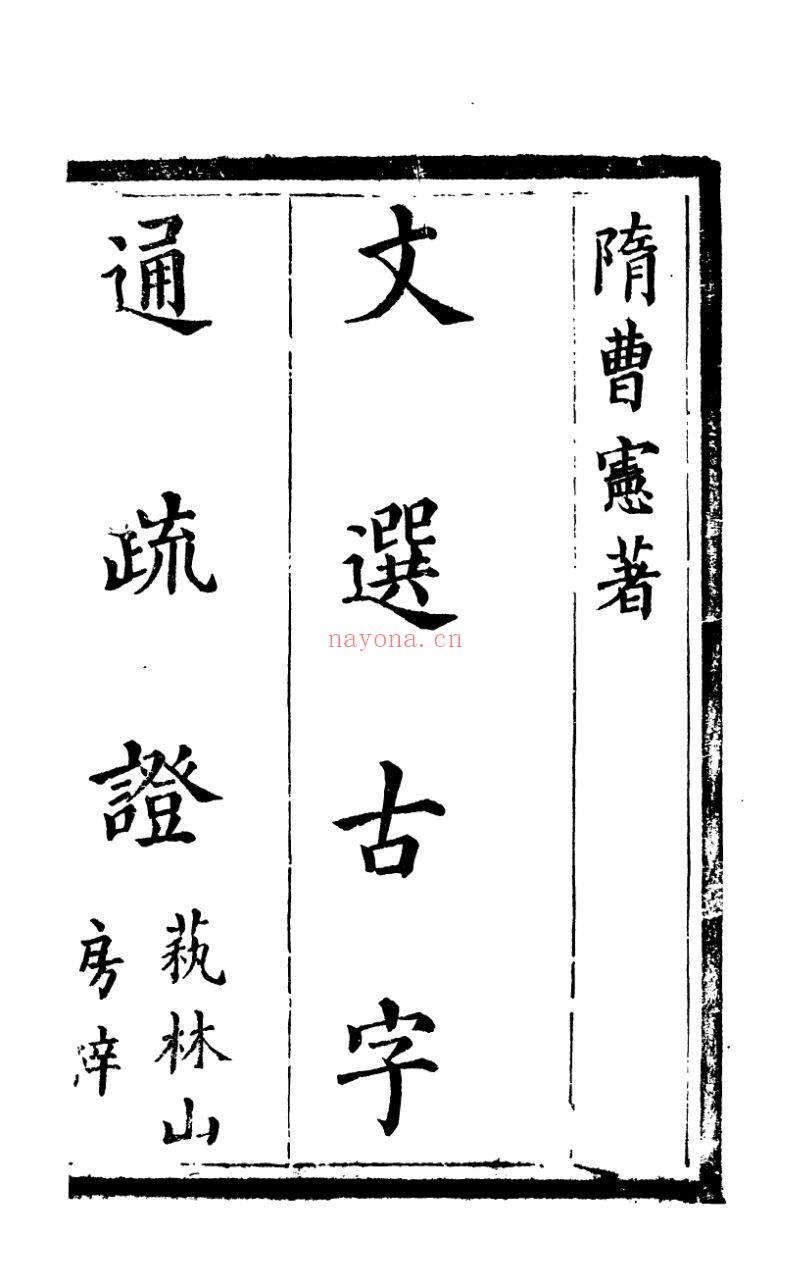 隋曹憲著
文選古字
通疏證
藝林山
房梓
nayona.cn